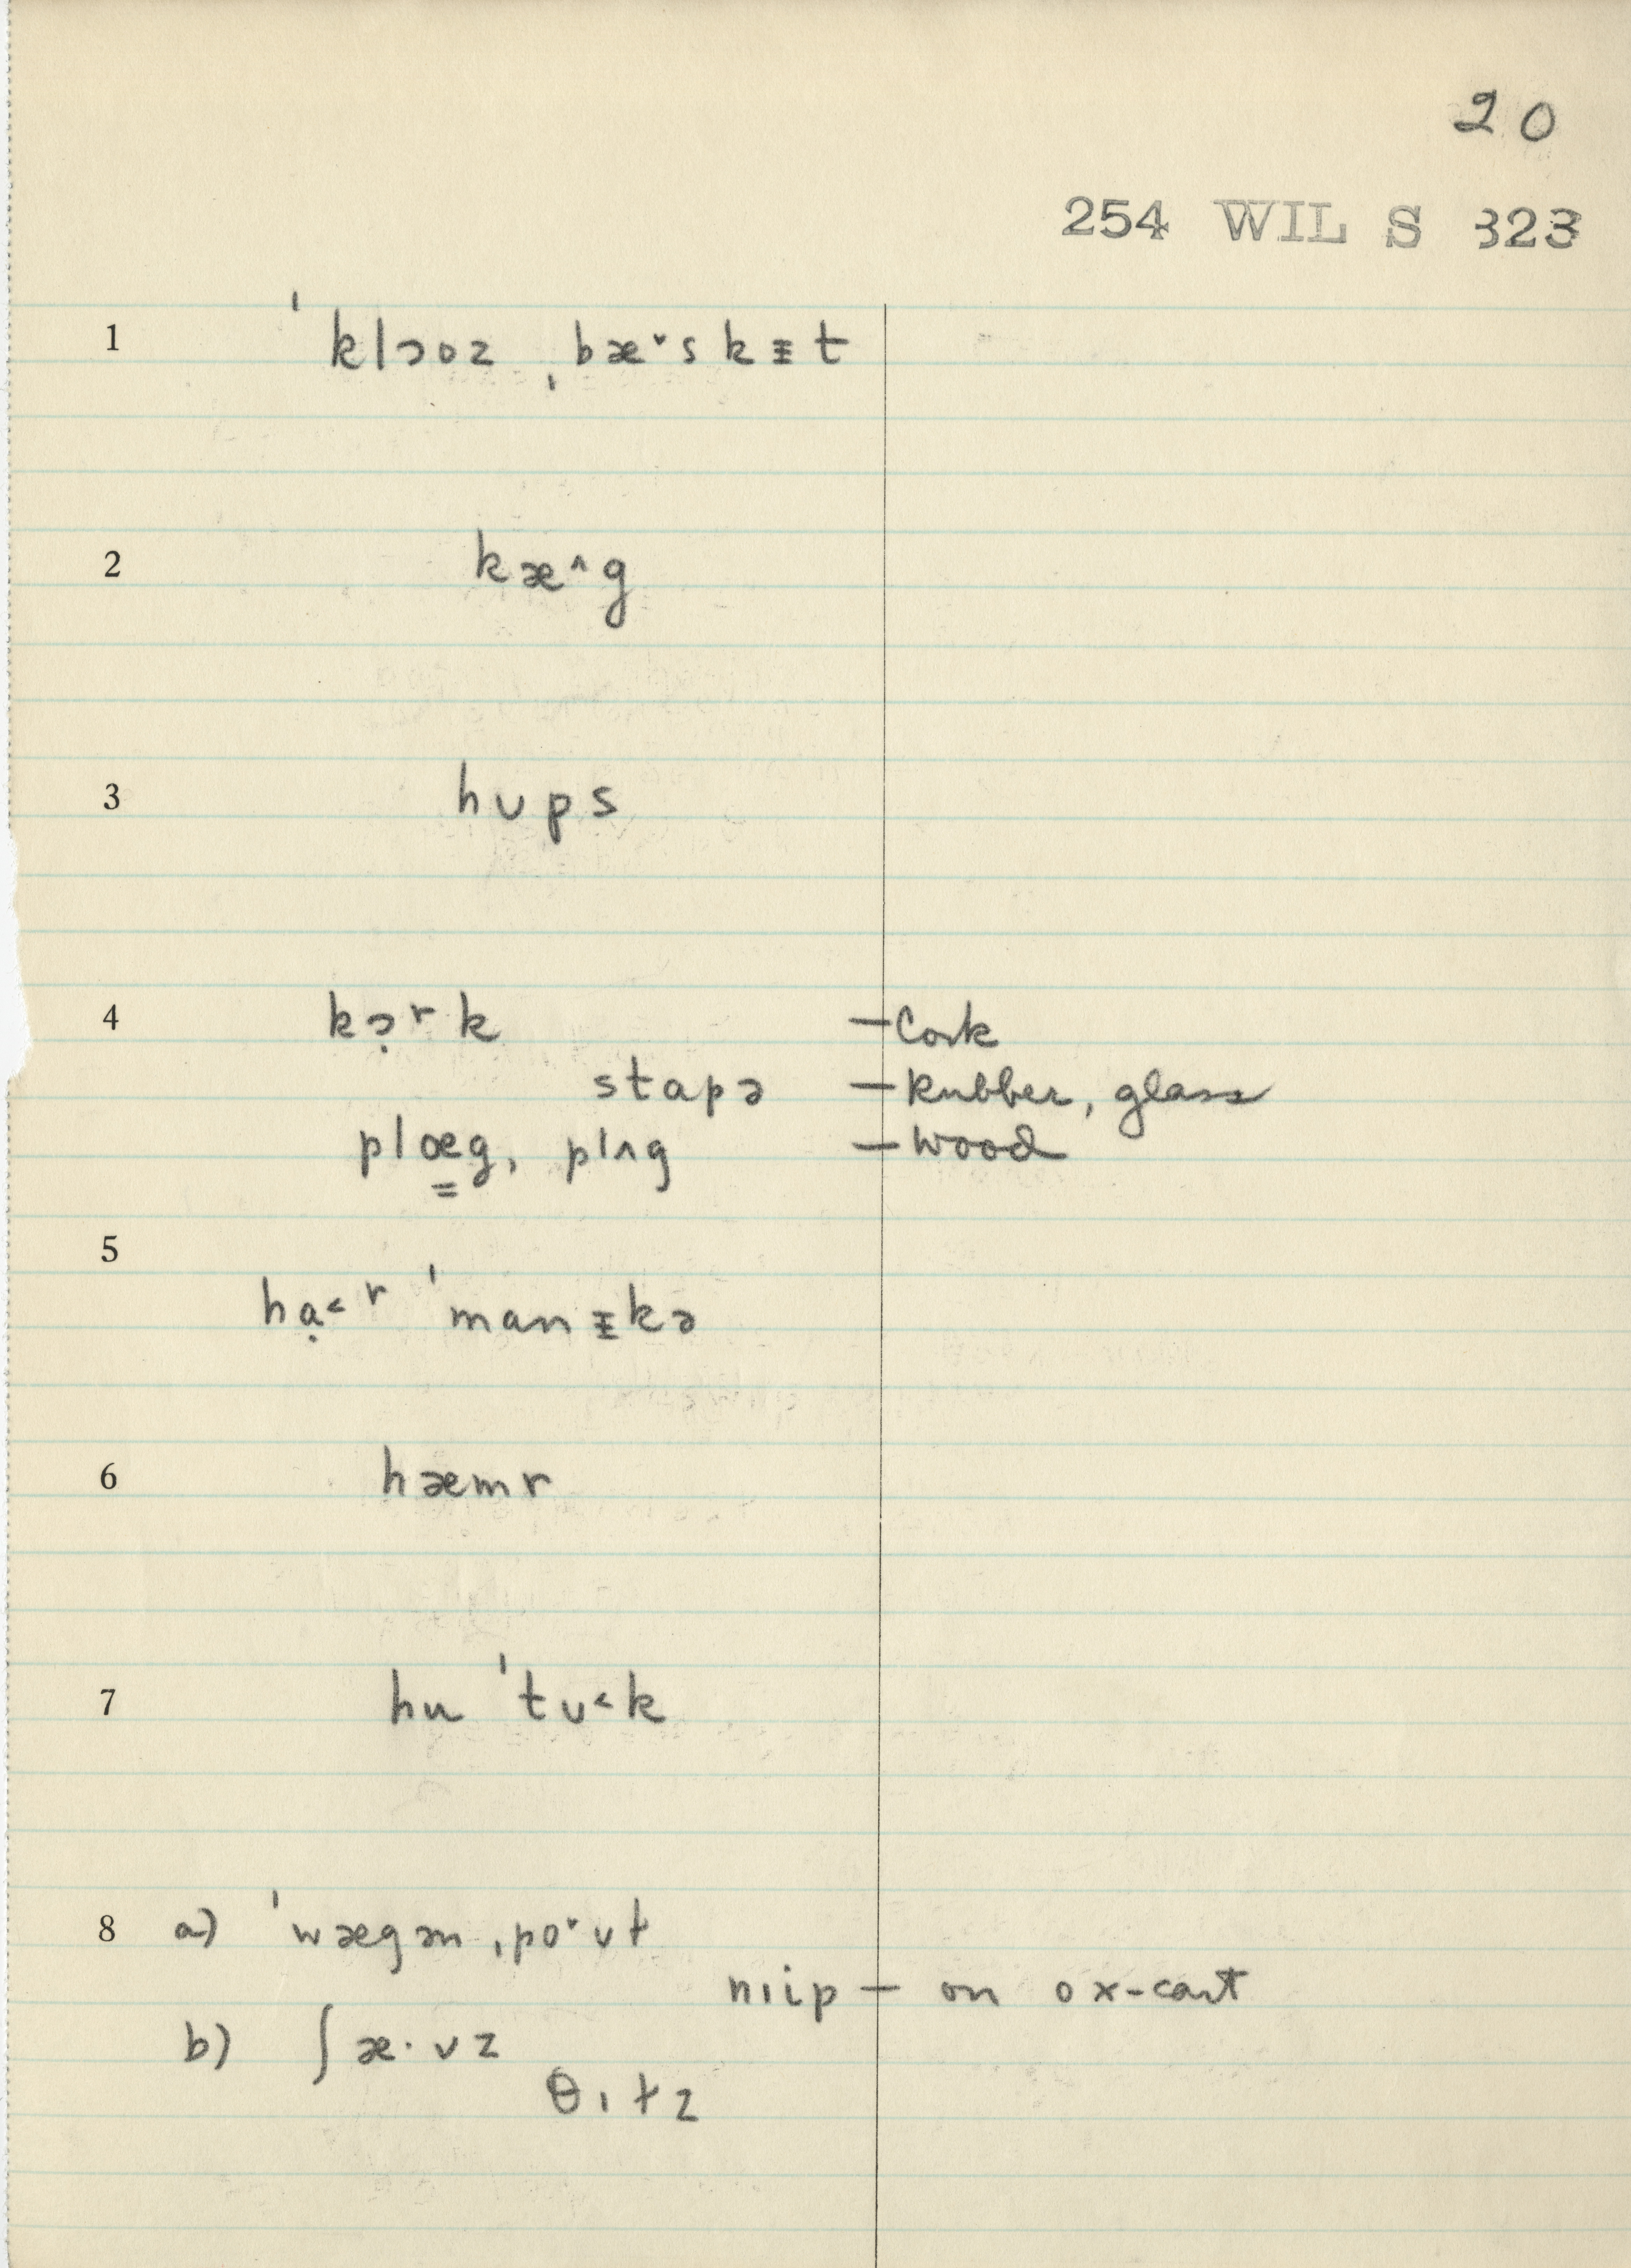 20
254 WIL S 323
1 ˈklɔoz ˌbæ˅skᵻt
2 kæ^g
3 hʊps
4 kɔ̣ʳk — Cork
stapə — Rubber, glass
plœ̳g, plʌg — wood
5
hạ˂ʳ ˈmanᵻkə
6 hæmr
7 hu ˈtʊ˂k
8 a) ˈwægən ˌpo˅ʊɫ
nɪip — on ox-cart
b) ʃæ·vz
θɪɫz